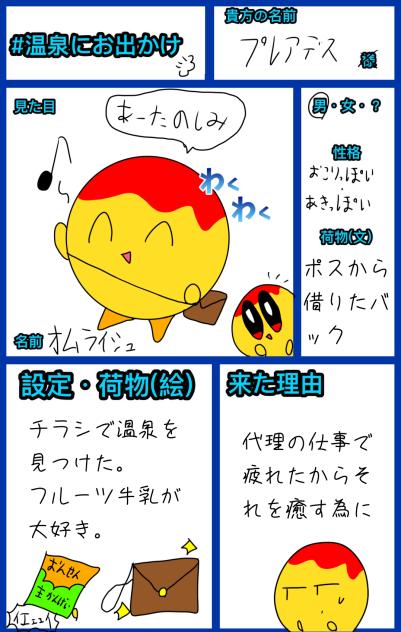 #温泉にお出かけ
貴方の名前
プレアデス
様
見た目
あーたのしみ
わく
わく
名前 オムライシュ
男・女・?
性格
おこりっぽい
・
あきっぽい
荷物(文)
ポスから
借りたバ
ック
設定・荷物(絵)
チラシで温泉を
見つけた。
フルーツ牛乳が
大好き。
おんせん
来た理由
代理の仕事で
疲れたからそ
れを癒す為に